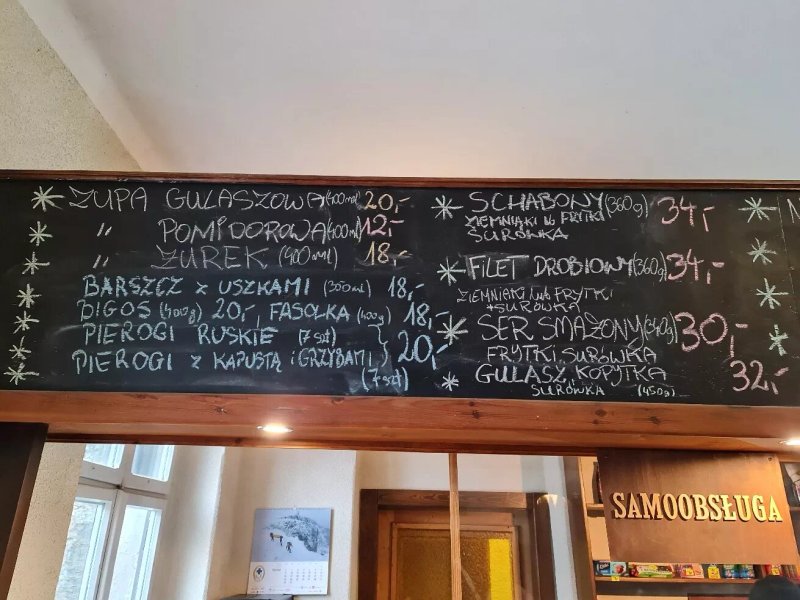 ZUPA GULASZOWA (400ml) 20,-
" POMIDOROWA (400ml) 12,-
" ŻUREK (400ml) 18,-
BARSZCZ Z USZKAMI (300ml) 18,-
BIGOS (400g) 20,- FASOLKA (400g) 18,-
PIEROGI RUSKIE (7szt)
PIEROGI Z KAPUSTĄ i GRZYBAMI 20,-
(7szt)
SCHABOWY (360g) 34,-
ZIEMNIAKI lub FRYTKI
SURÓWKA
FILET DROBIOWY (360g) 34,-
ZIEMNIAKI lub FRYTKI
*SURÓWKA
SER SMAŻONY (340g) 30,-
FRYTKI, SURÓWKA
GULASZ, KOPYTKA 32,-
SURÓWKA (450g)
SAMOOBSŁUGA